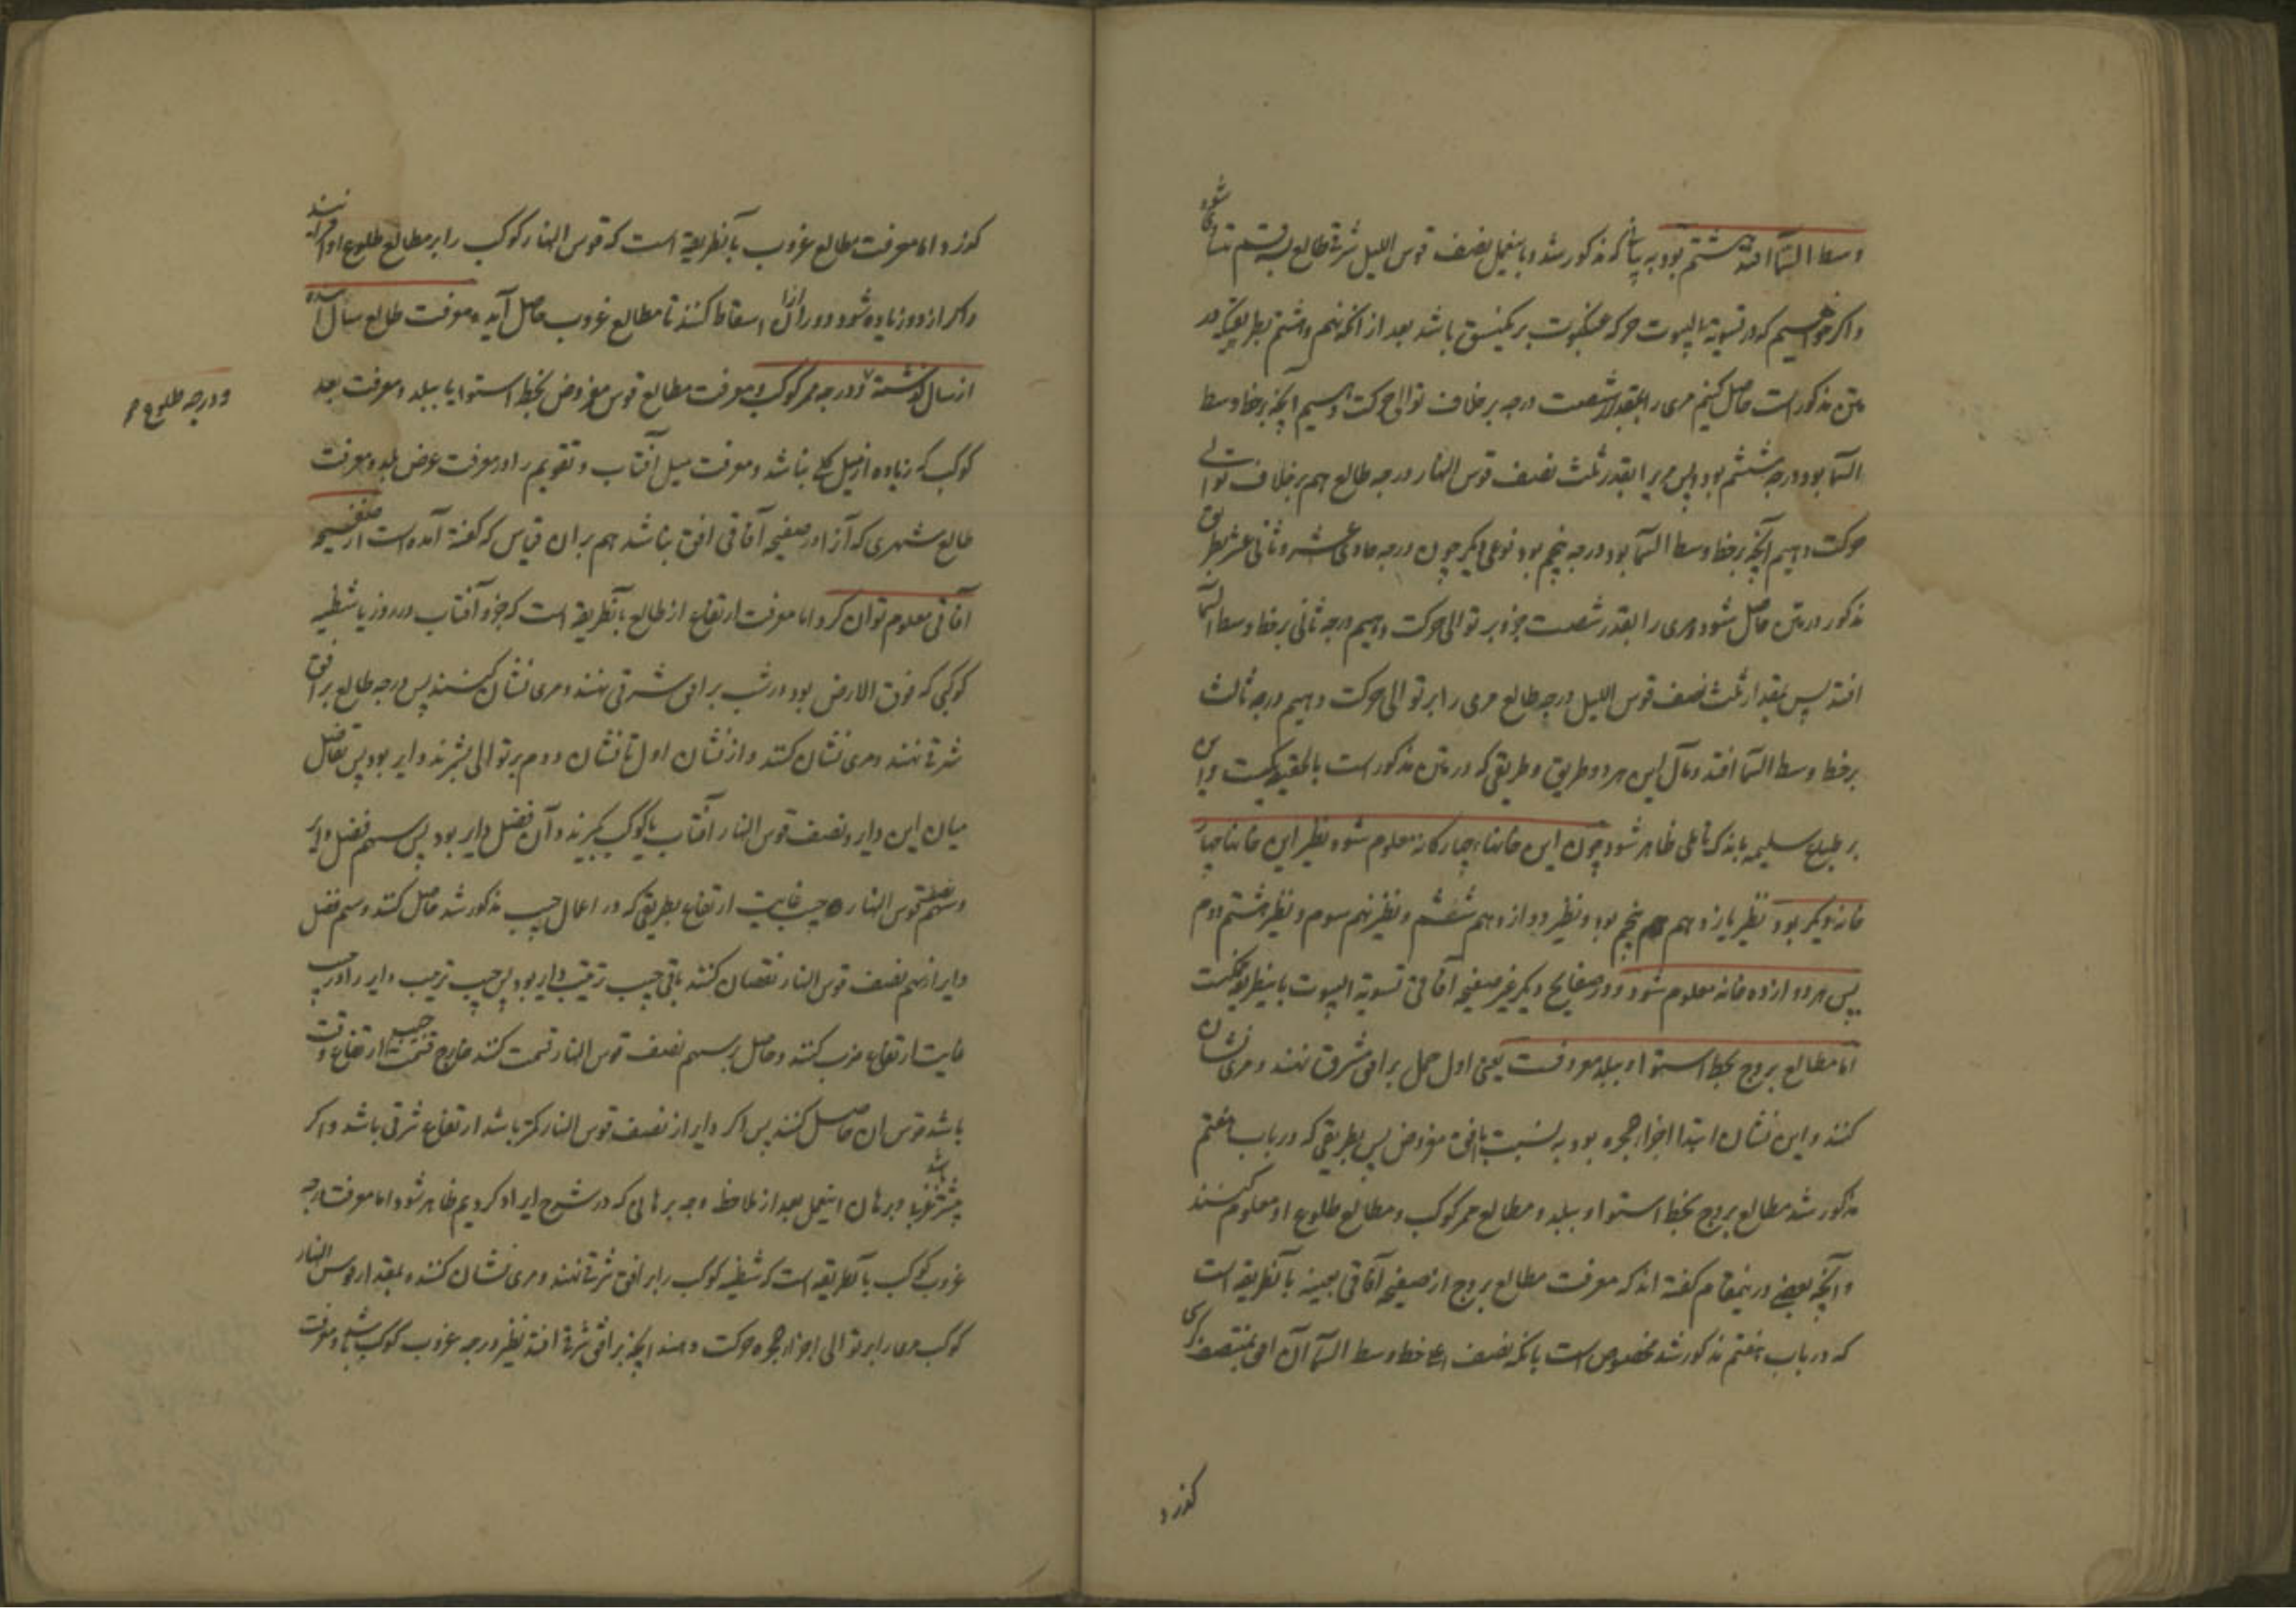 وسط السما افتد هشتم بود به بیانی که مذکور شد و باینعمل نصف قوس اللیل شرقی طالع بسه قسم متساوی شود
و اکر خواهیم که در تسویة البیوت حرکه عنکبوت بر یکنسق باشد بعد از انکه نهم و هشتم بطریقیکه در
متن مذکور است حاصل کنیم مری را بمقدار شصت درجه بر خلاف توالی حرکت دهیم آنچه بر خط وسط
السما بود درجه ششم بود پس مری را بقدر ثلث نصف قوس النهار درجه طالع هم بر خلاف توالی
حرکت دهیم آنچه بر خط وسط السما بود درجه پنجم بود نوعی دیکر چون درجه حادی عشر و ثانی عشر بطریق
مذکور در متن حاصل شود مری را بقدر شصت جزو بر توالی حرکت دهیم درجه ثانی بر خط وسط السما
افتد پس بمقدار ثلث نصف قوس اللیل درجه طالع مری را بر توالی حرکت دهیم درجه ثالث
بر خط وسط السما افتد و مآل این هر دو طریق و طریقی که در متن مذکور است بالحقیقه یکیست و این
بر طبع سلیم باندک تاملی ظاهر شود چون این خانها چهارکانه معلوم شود نظیر این خانها چهار
خانه دیکر بود نظیر یازدهم پنجم بود و نظیر دوازدهم ششم و نظیر نهم سوم و نظیر هشتم دوم
پس هر دوازده خانه معلوم شود و در صفایح دیکر غیر صفیحه آفاقی تسویة البیوت باینطریق ممکنست
اما مطالع بروج بخط استوا و ببلد معروفست یعنی اول حمل بر افق مشرق نهند و مری نشان
کنند و این نشان ابتدا اجزا حجره بود به نسبت با افق مفروض پس بطریقی که در باب هفتم
مذکور شد مطالع بروج بخط استوا و ببلد و مطالع ممر کوکب و مطالع طلوع او معلوم کنند
و آنچه بعضی درینمقام کفته اند که معرفت مطالع بروج از صفیحه آفاقی بعینه بآنطریقه است
که در باب هفتم مذکور شد مخصوص است بانکه نصف خط وسط السما آن افق بمنتصف کرسی
کذرد
کذرد و اما معرفت مطالع غروب بآنطریقه است که قوس النهار کوکب را بر مطالع طلوع او افزایند
و اکر از دور زیاده شود دور از ان اسقاط کنند تا مطالع غروب حاصل آید و معرفت طالع سال آینده
از سال کذشته و درجه ممر کوکب و معرفت مطالع قوس مفروض بخط استوا یا ببلد و معرفت بعد
و درجه طلوع
کوکب که زیاده از میل کلی نباشد و معرفت میل آفتاب و تقویم را و معرفت عرض بلد و معرفت
طالع شهری که آنرا در صفیحه آفاقی افق نباشد هم بران قیاس که کفته آمده است از صفیحه
آفاقی معلوم توان کرد و اما معرفت ارتفاع از طالع بآنطریقه است که جزو آفتاب در روز یا شظیه
کوکبی که فوق الارض بود در شب بر افق شرقی نهند و مری نشان کنند پس درجه طالع بر افق
شرقی نهند و مری نشان کنند و از نشان اول تا نشان دوم بر توالی بشمرند دایر بود پس تفاضل
میان این دایر و نصف قوس النهار آفتاب یا کوکب بکیرند و آن فضل دایر بود پس سهم فضل دایر
و سهم نصف قوس النهار و جیب غایت ارتفاع بطریقی که در اعمال جیب مذکور شد حاصل کنند و سهم فضل
دایر از سهم نصف قوس النهار نقصان کنند باقی جیب ترتیب دایر بود پس جیب ترتیب دایر را در جیب
غایت ارتفاع ضرب کنند و حاصل بر سهم نصف قوس النهار قسمت کنند خارج قسمت جیب ارتفاع وقت
باشد قوس ان حاصل کنند پس اکر دایر از نصف قوس النهار کمتر باشد ارتفاع شرقی باشد و اکر
بیشتر غربی باشد و برهان اینعمل بعد از ملاحظه وجه برهانی که در شرح ایراد کردیم ظاهر شود اما معرفت درجه
غروب کوکب بآنطریقه است که شظیه کوکب را بر افق شرقی نهند و مری نشان کنند و بمقدار قوس النهار
کوکب مری را بر توالی اجزا حجره حرکت دهند آنچه بر افق شرقی افتد نظیر درجه غروب کوکب باشد و معرفت